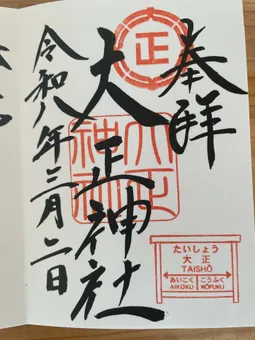 奉拝
正
大正神社
大正
神社
令和八年三月二日
たいしょう
大正
TAISHŌ
あいこく こうふく
AIKOKU KŌFUKU